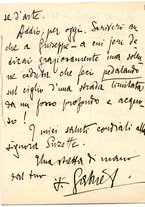 se d'arte.
Addio, per oggi. Scriverò an-
che a Giuseppe — a cui ieri de-
dicai graziosamente una solen-
ne caduta che feci pedalando
sul ciglio d'una strada limitata
da un fosso profondo e acquo-
so!
I miei saluti cordiali alla
signora Suzette.
Una stretta di mano
dal tuo
Gabriel